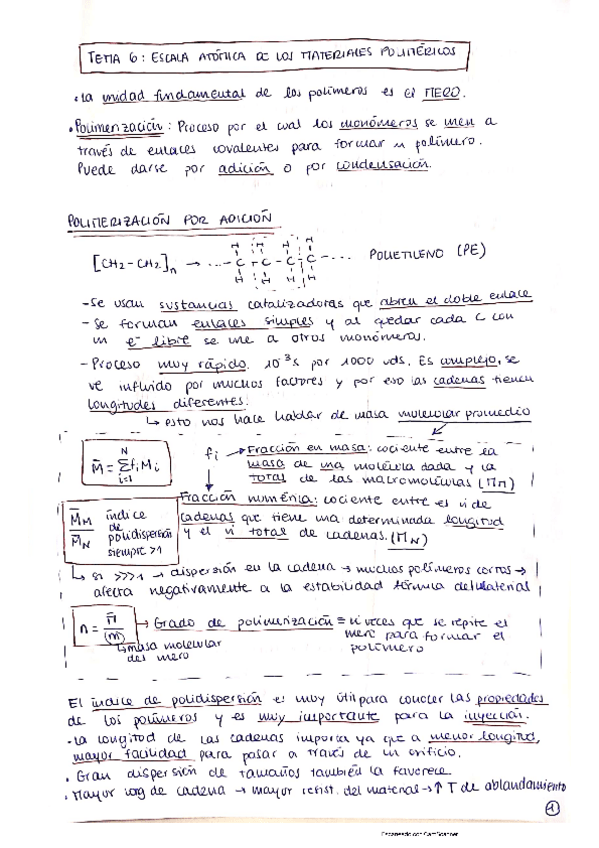 TEMA 6: ESCALA ATÓMICA DE LOS MATERIALES POLIMÉRICOS
• La unidad fundamental de los polímeros es el MERO.
• Polimerización: Proceso por el cual los monómeros se unen a
través de enlaces covalentes para formar un polímero.
Puede darse por adición o por condensación.
POLIMERIZACIÓN POR ADICIÓN
[CH2-CH2]n → ...-C-C-C-C-... POLIETILENO (PE)
H H H H
H H H H
- Se usan sustancias catalizadoras que abren el doble enlace
- Se forman enlaces simples y al quedar cada C con
un e- libre se une a otros monómeros.
- Proceso muy rápido. 10-3s por 1000 uds. Es complejo, se
ve influido por muchos factores y por eso las cadenas tienen
longitudes diferentes.
↳ esto nos hace hablar de masa molecular promedio
M̄ = Σ fi Mi
N
i=1
fi → Fracción en masa: cociente entre la
masa de una molécula dada y la
total de las macromoléculas (M̄M)
Fracción numérica: cociente entre el nº de
cadenas que tiene una determinada longitud
y el nº total de cadenas. (M̄N)
M̄M / M̄N índice de polidispersión siempre >1
↳ si >>>1 → dispersión en la cadena → muchos polímeros cortos →
afecta negativamente a la estabilidad térmica del material
n = M̄ / (m) → Grado de polimerización = nº veces que se repite el
mero para formar el
polímero
↳ masa molecular
del mero
El índice de polidispersión es muy útil para conocer las propiedades
de los polímeros y es muy importante para la inyección.
• La longitud de las cadenas importa ya que a menor longitud,
mayor facilidad para pasar a través de un orificio.
• Gran dispersión de tamaños también la favorece.
• Mayor long de cadena → mayor resist. del material → ↑ T de ablandamiento
1
Escaneado con CamScanner